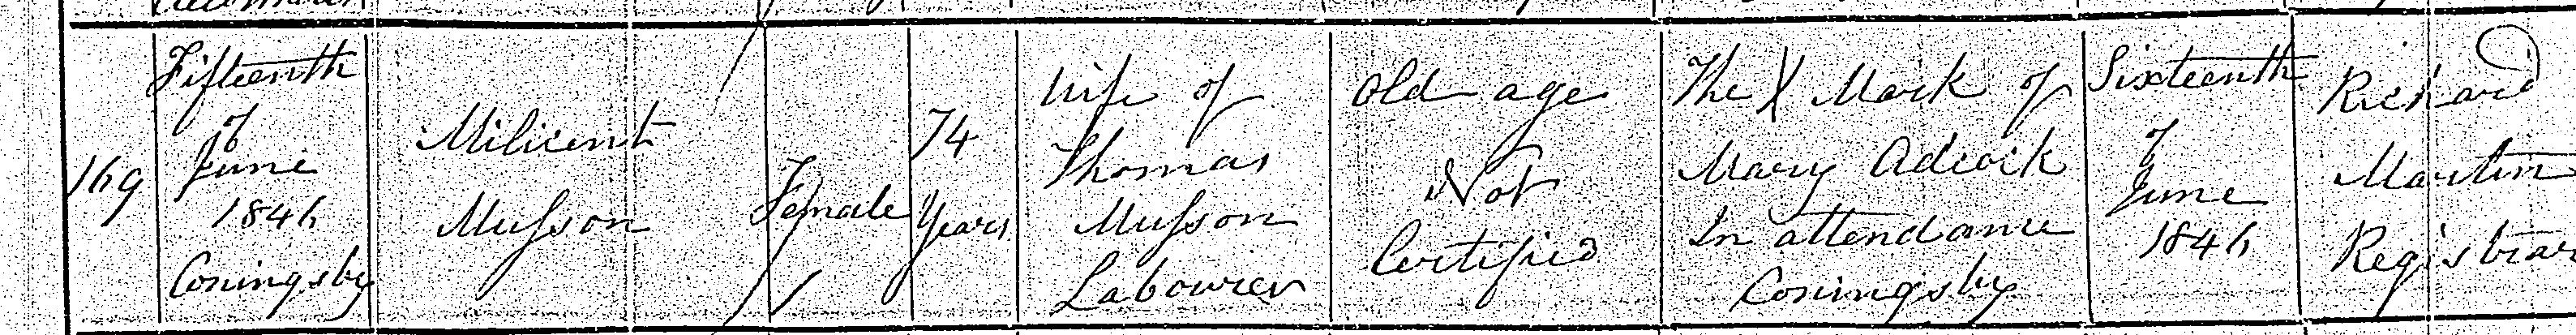 169
Fifteenth
of
June
1846
Coningsby
Milicent
Musson
Female
74
Years
Wife of
Thomas
Musson
Labourer
Old age
Not
Certified
The X Mark of
Mary Adcock
In attendance
Coningsby
Sixteenth
of
June
1846
Richard
Martin
Registrar